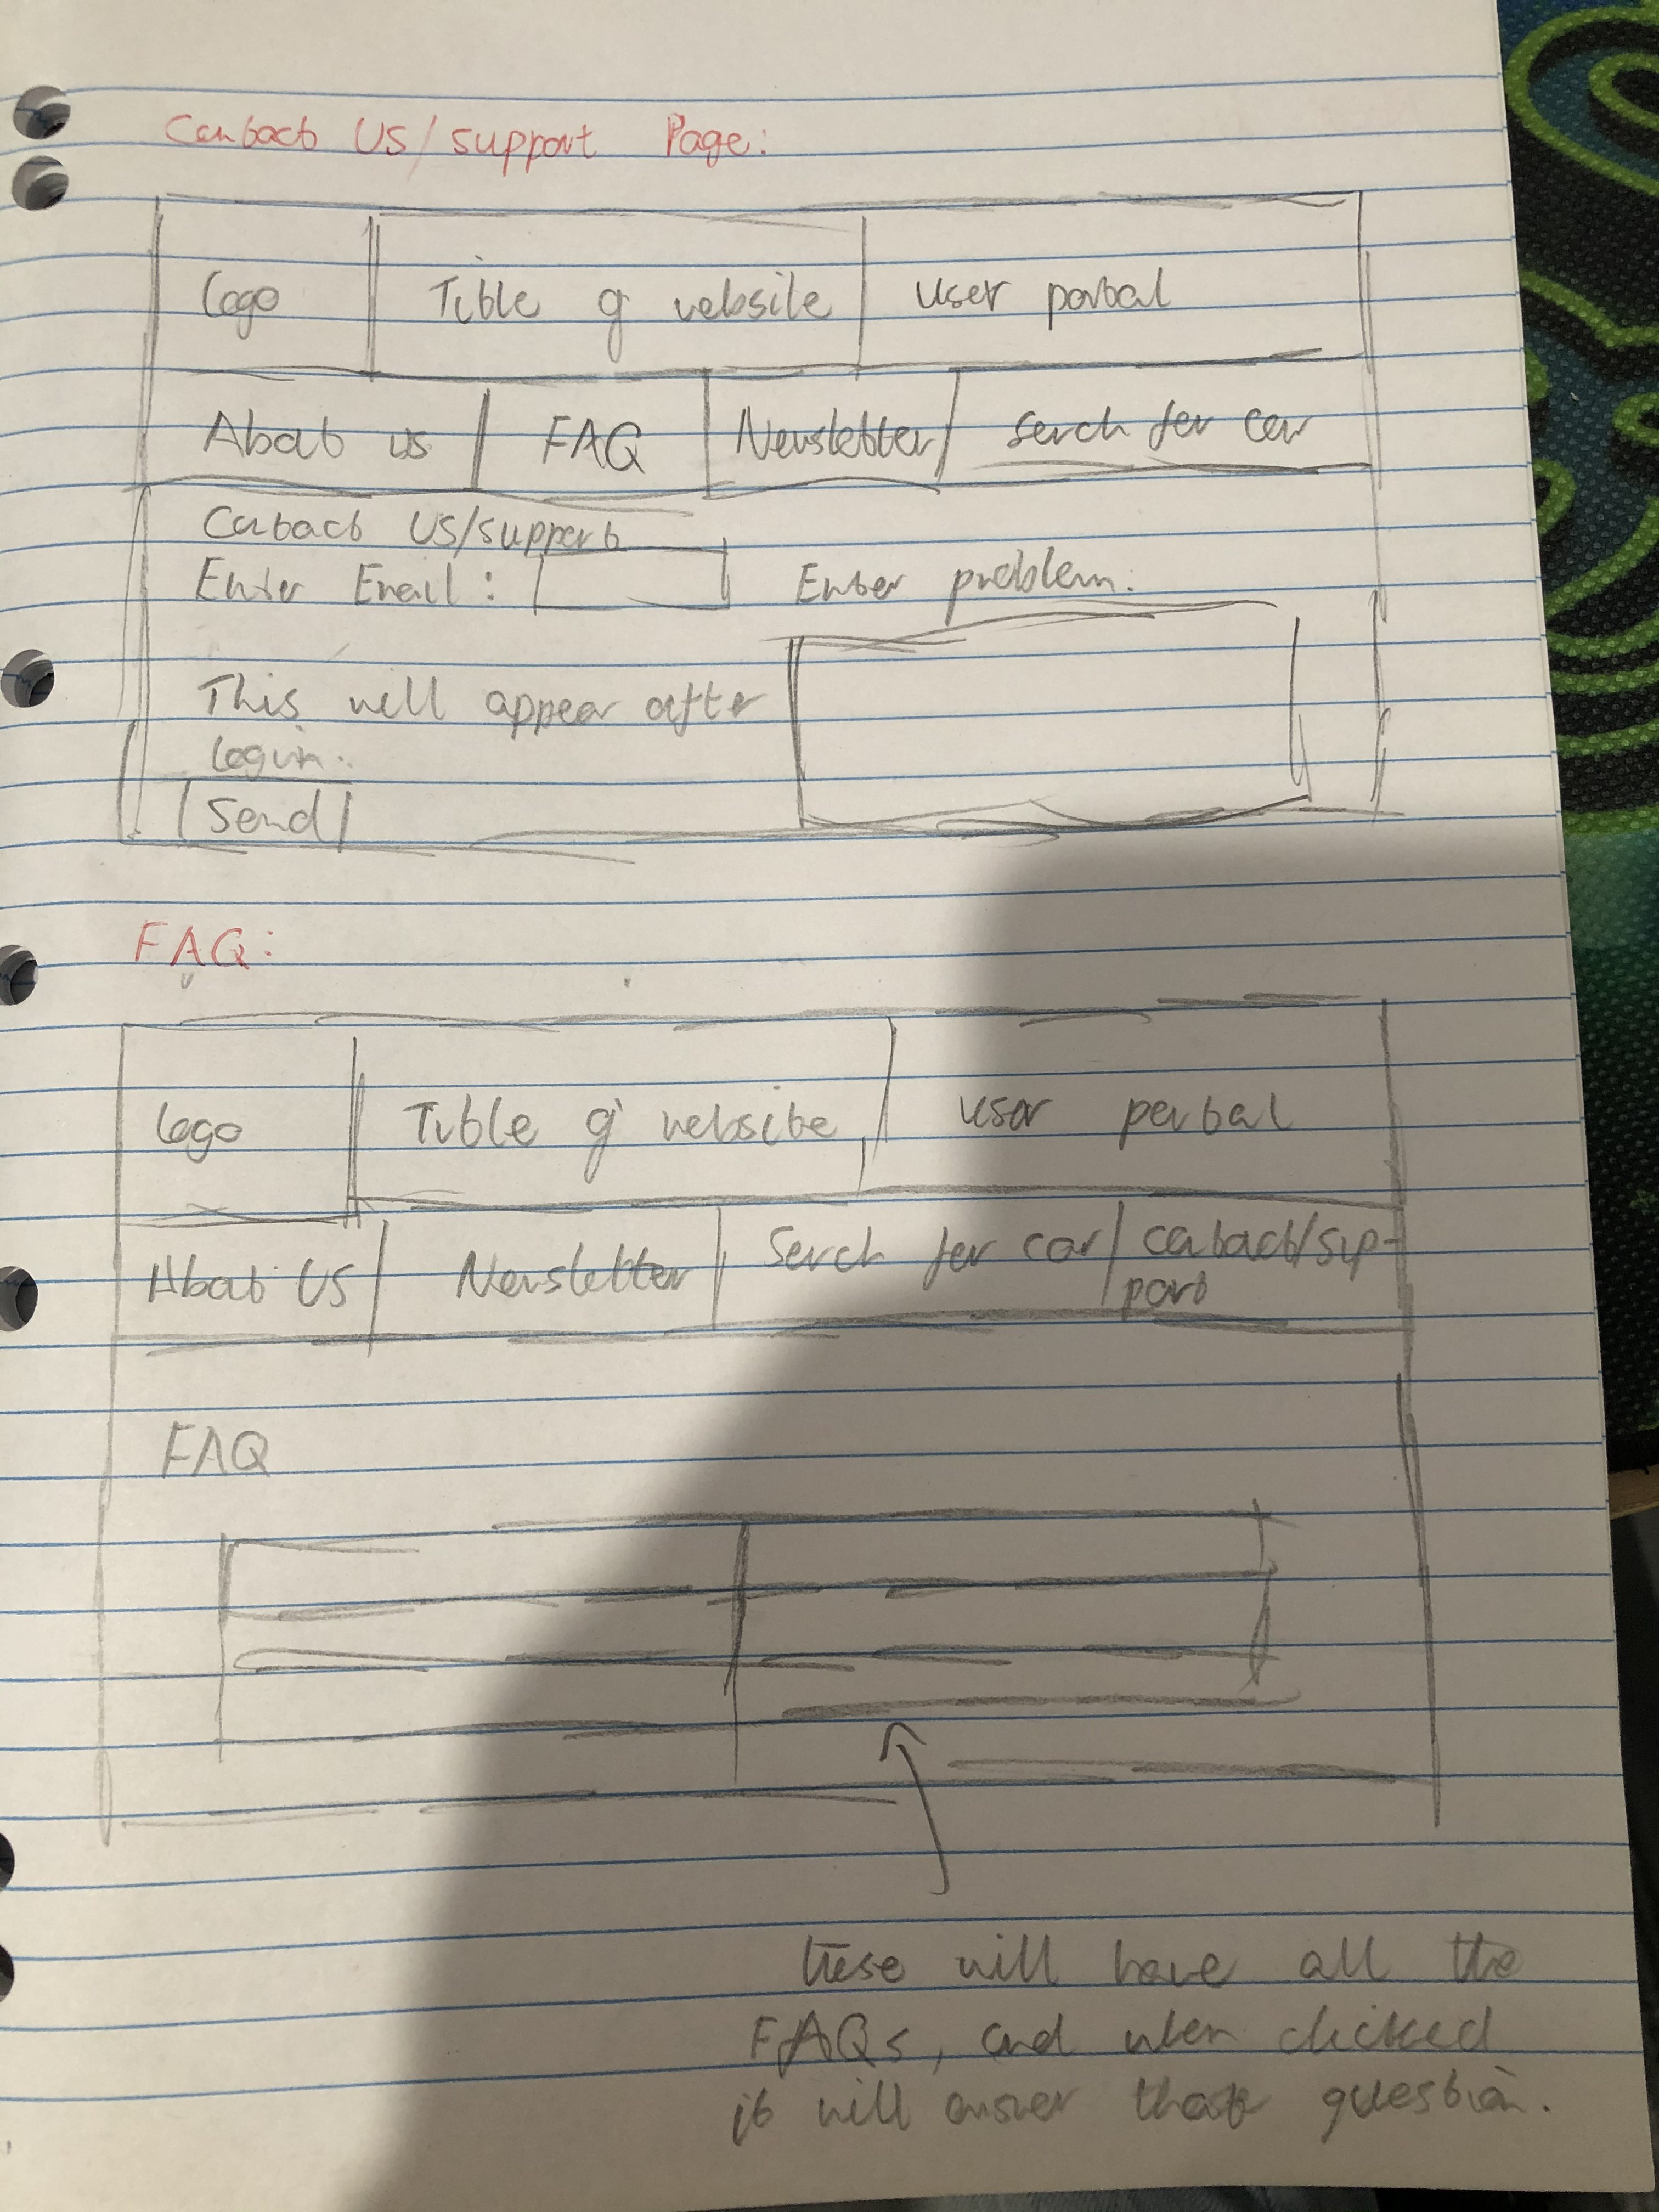 Contact US/support Page:
logo Title of website user portal
About us FAQ Newsletter Serch for car
Contact US/support
Enter Email: Enter problem:
This will appear after
login.
Send
FAQ:
logo Title of website user portal
About US Newsletter Serch for car contact/sup-
port
FAQ
these will have all the
FAQs, and when clicked
it will answer that question.